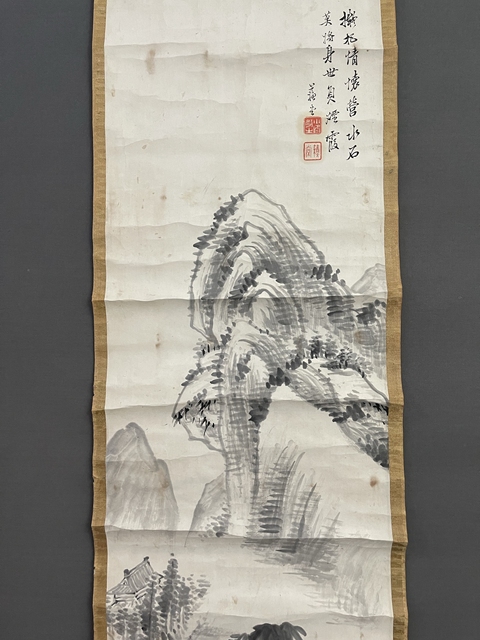 擬把情懷營水石
莫將身世負煙霞